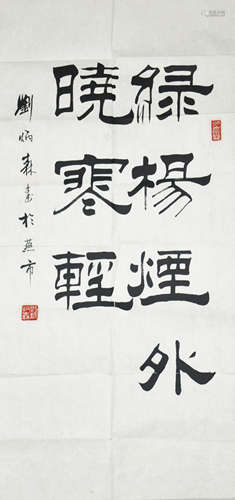 緑楊煙外
曉寒輕
劉炳森書於燕市